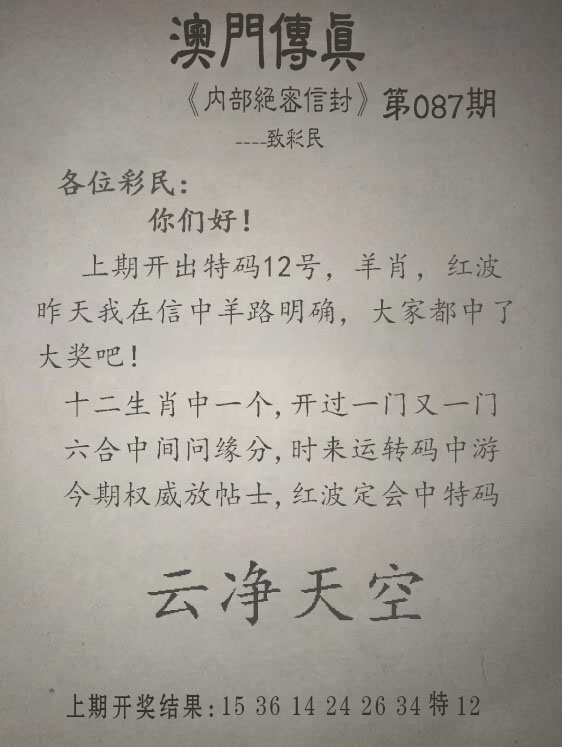 澳門傳眞
《内部絕密信封》第087期
----致彩民
各位彩民：
你们好！
上期开出特码12号，羊肖，红波
昨天我在信中羊路明确，大家都中了
大奖吧！
十二生肖中一个,开过一门又一门
六合中间问缘分,时来运转码中游
今期权威放帖士,红波定会中特码
云净天空
上期开奖结果:15 36 14 24 26 34特12